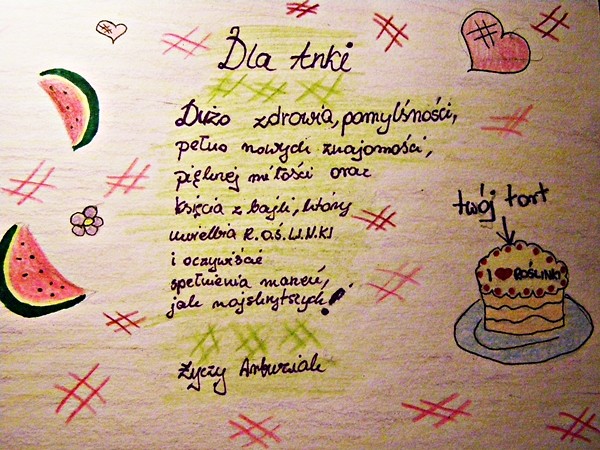 Dla Anki
Dużo zdrowia, pomyślności,
pełno nowych znajomości,
pięknej miłości oraz
księcia z bajki, który
uwielbia R.oś.LI.N.KI
i oczywiście
spełnienia marzeń,
jak najskrytszych!
Życzy Arbuziak
twój tort
I ❤ ROŚLINKI